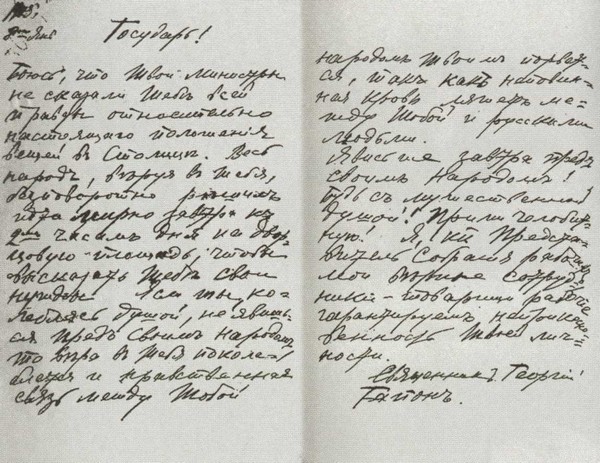 1905,
8го Янв
Государь!
Боюсь, что Твои министры
не сказали Тебѣ всей
правды относительно
настоящаго положенія
вещей въ Столицѣ. Весь
народъ, вѣруя въ Тебя,
безповоротно рѣшилъ
мирно завтра къ
2мъ часамъ дня на двор-
цовую площадь, чтобы
высказать Тебѣ свои
нужды. Если ты, ко-
леблясь душой, не явишь-
ся предъ своимъ народомъ,
то вѣра въ Тебя поколе-
блется и нравственная
связь между Тобой
народомъ Твоимъ порвет-
ся, такъ какъ неповин-
ная кровь ляжетъ ме-
жду Тобой и русскими
людьми.
Явись же завтра предъ
своимъ Народомъ!
Будь съ мужественной
душой! Прими челобит-
ную! Я, Предста-
витель Собранія рабочихъ
мои вѣрные сотруд-
ники - товарищи рабочіе
гарантируемъ неприкосно-
венность Твоей лич-
ности.
Священникъ Георгій
Гапонъ.